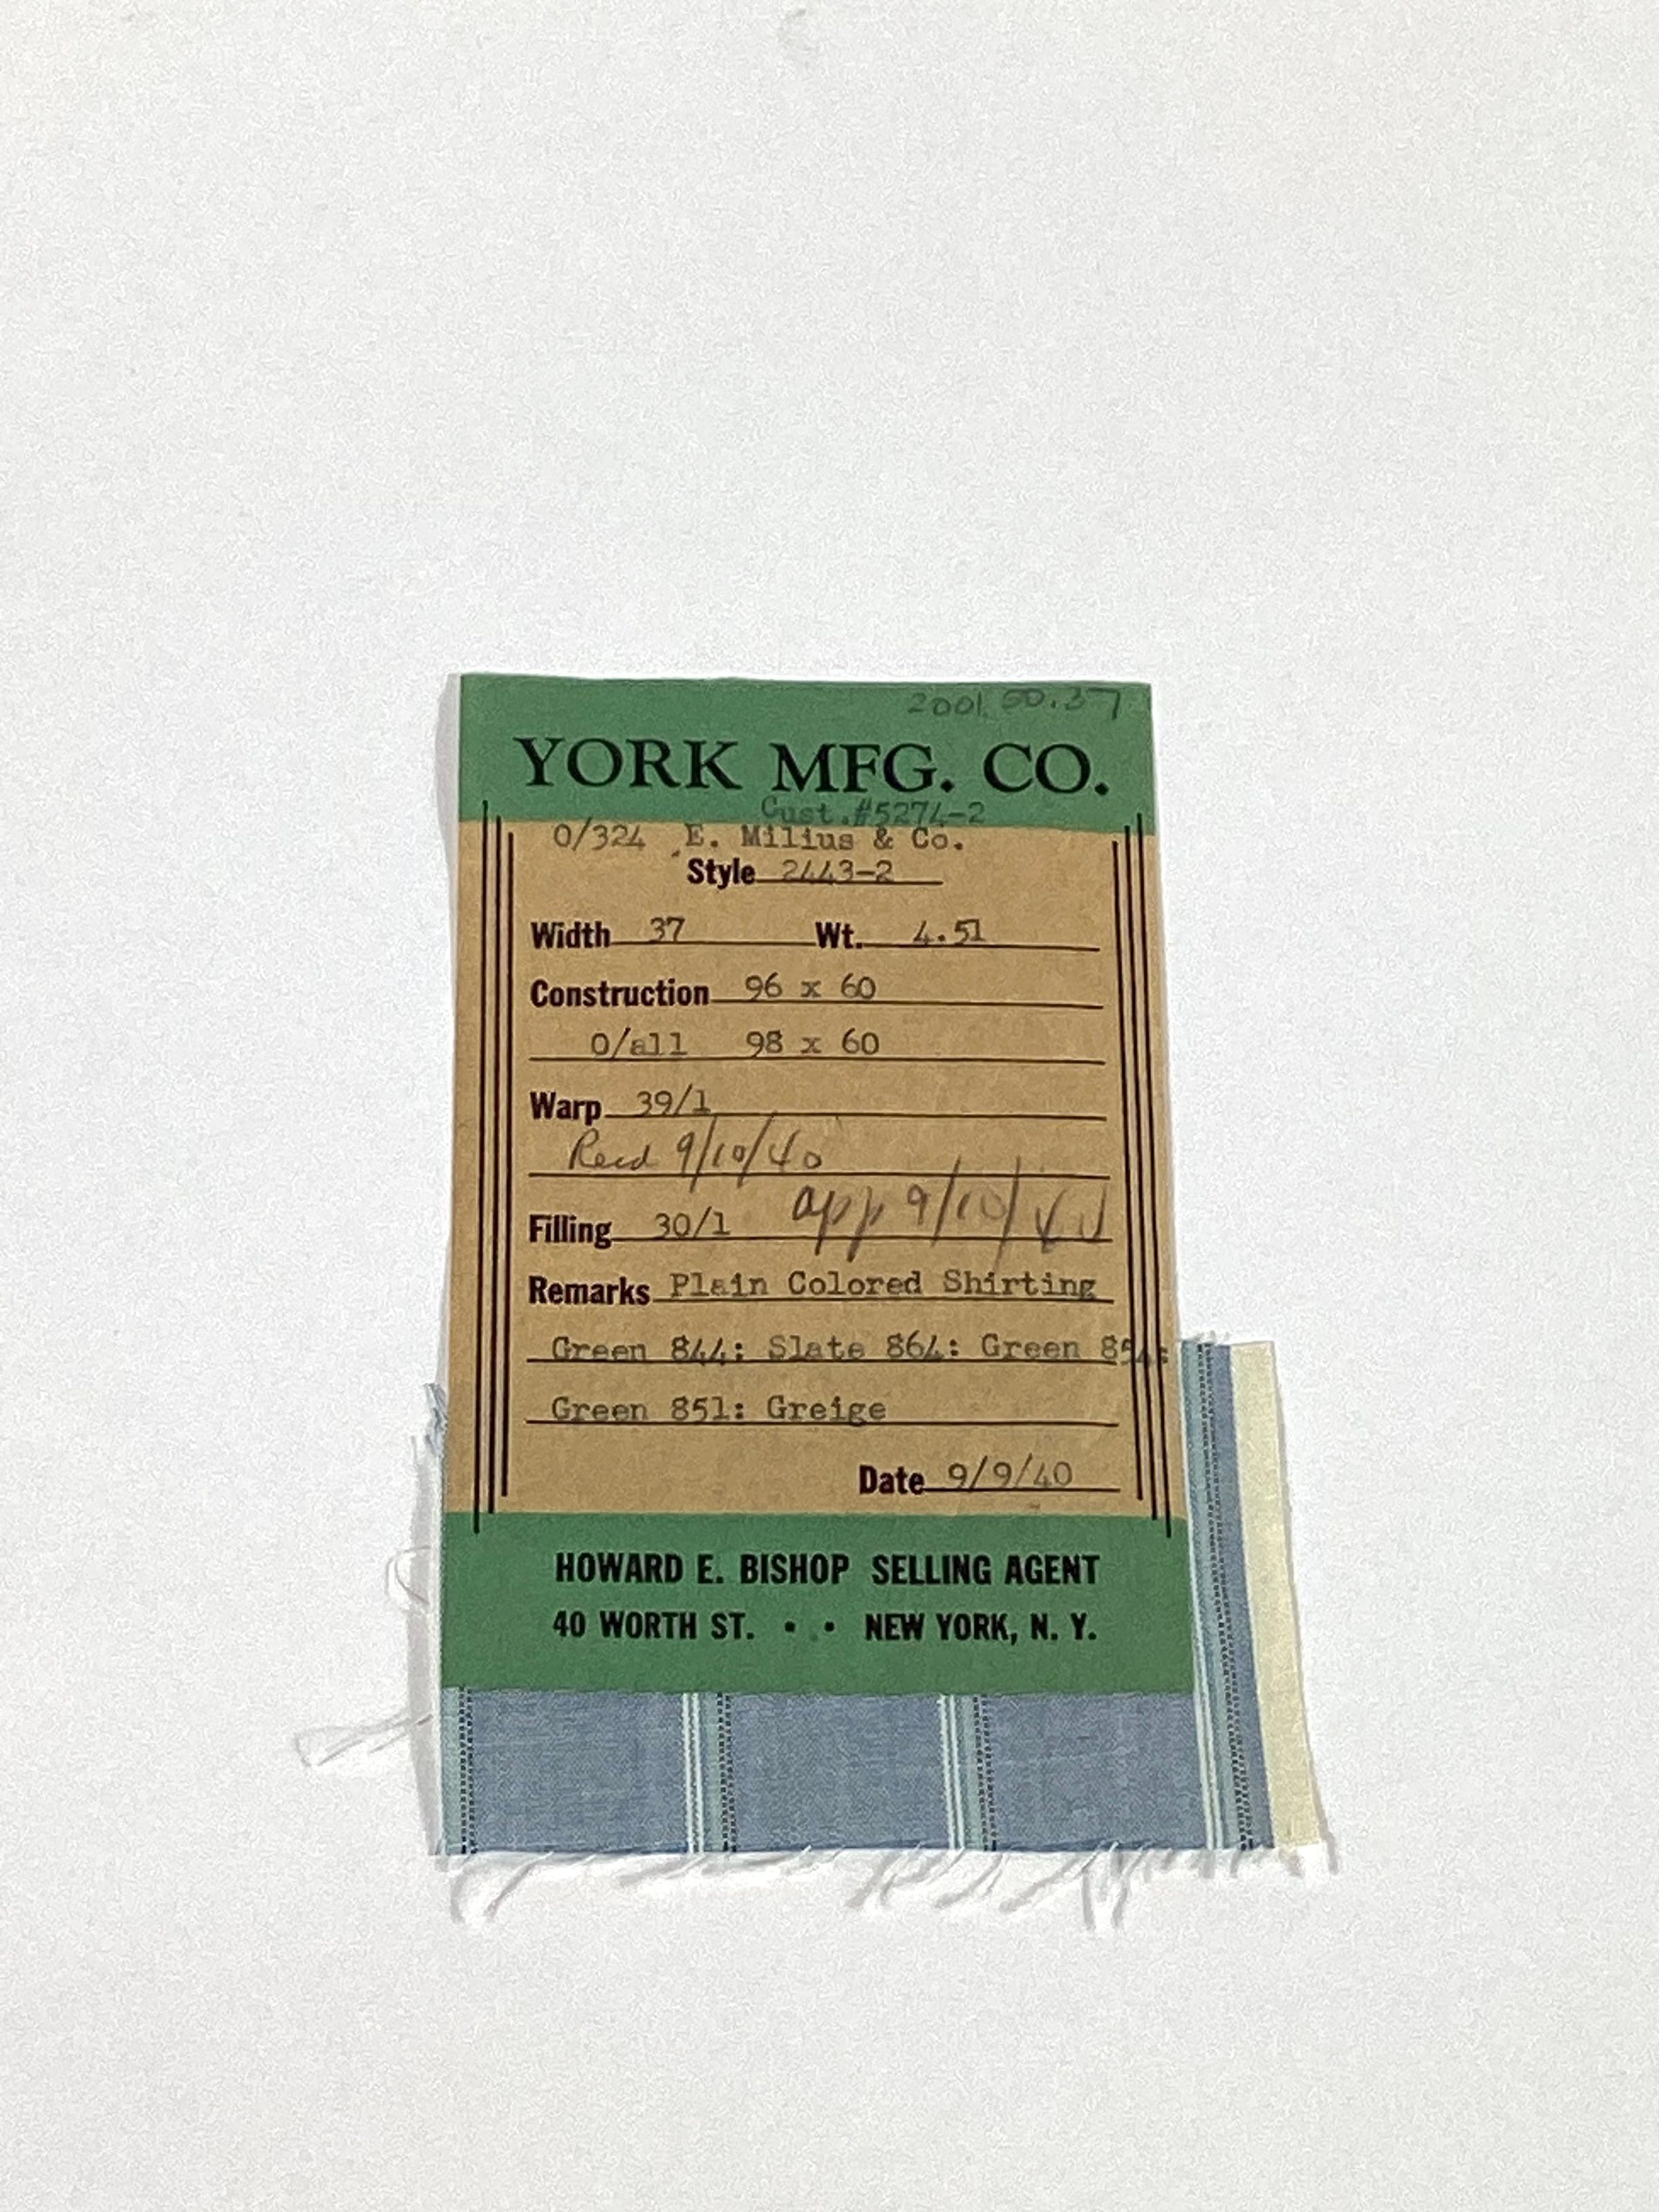 2001.50.37
YORK MFG. CO.
Cust.#5274-2
0/324 E. Milius & Co.
Style 2443-2
Width 37 Wt. 4.51
Construction 96 x 60
0/all 98 x 60
Warp 39/1
Recd 9/10/40
app 9/10/40
Filling 30/1
Remarks Plain Colored Shirting
Green 844: Slate 864: Green 854:
Green 851: Greige
Date 9/9/40
HOWARD E. BISHOP SELLING AGENT
40 WORTH ST. • • NEW YORK, N. Y.